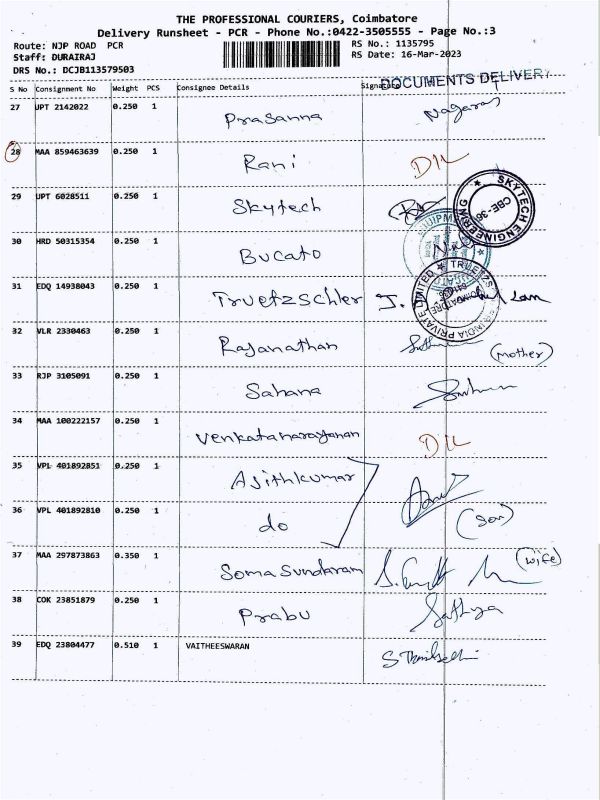 THE PROFESSIONAL COURIERS, Coimbatore
Delivery Runsheet - PCR - Phone No.:0422-3505555 - Page No.:3
Route: NJP ROAD PCR
Staff: DURAIRAJ
DRS No.: DCJB113579503
RS No.: 1135795
RS Date: 16-Mar-2023
S No Consignment No Weight PCS Consignee Details Signature
DOCUMENTS DELIVERY
27 UPT 2142022 0.250 1 Prasanna Nagaraj
28 MAA 859463639 0.250 1 Rani D/L
29 UPT 6028511 0.250 1 Skytech
SKYTECH ENGINEERING
CBE-36
30 HRD 50315354 0.250 1 Bucato
31 EDQ 14938043 0.250 1 Truetzschler
32 VLR 2330463 0.250 1 Rajanathan (mother)
33 RJP 3105091 0.250 1 Sahana
34 MAA 100222157 0.250 1 Venkatanarayanan D/L
35 VPL 401892851 0.250 1 Ajithkumar
36 VPL 401892810 0.250 1 do (son)
37 MAA 297873863 0.350 1 Somasundaram (wife)
38 COK 23851879 0.250 1 Prabu Sathya
39 EDQ 23804477 0.510 1 VAITHEESWARAN